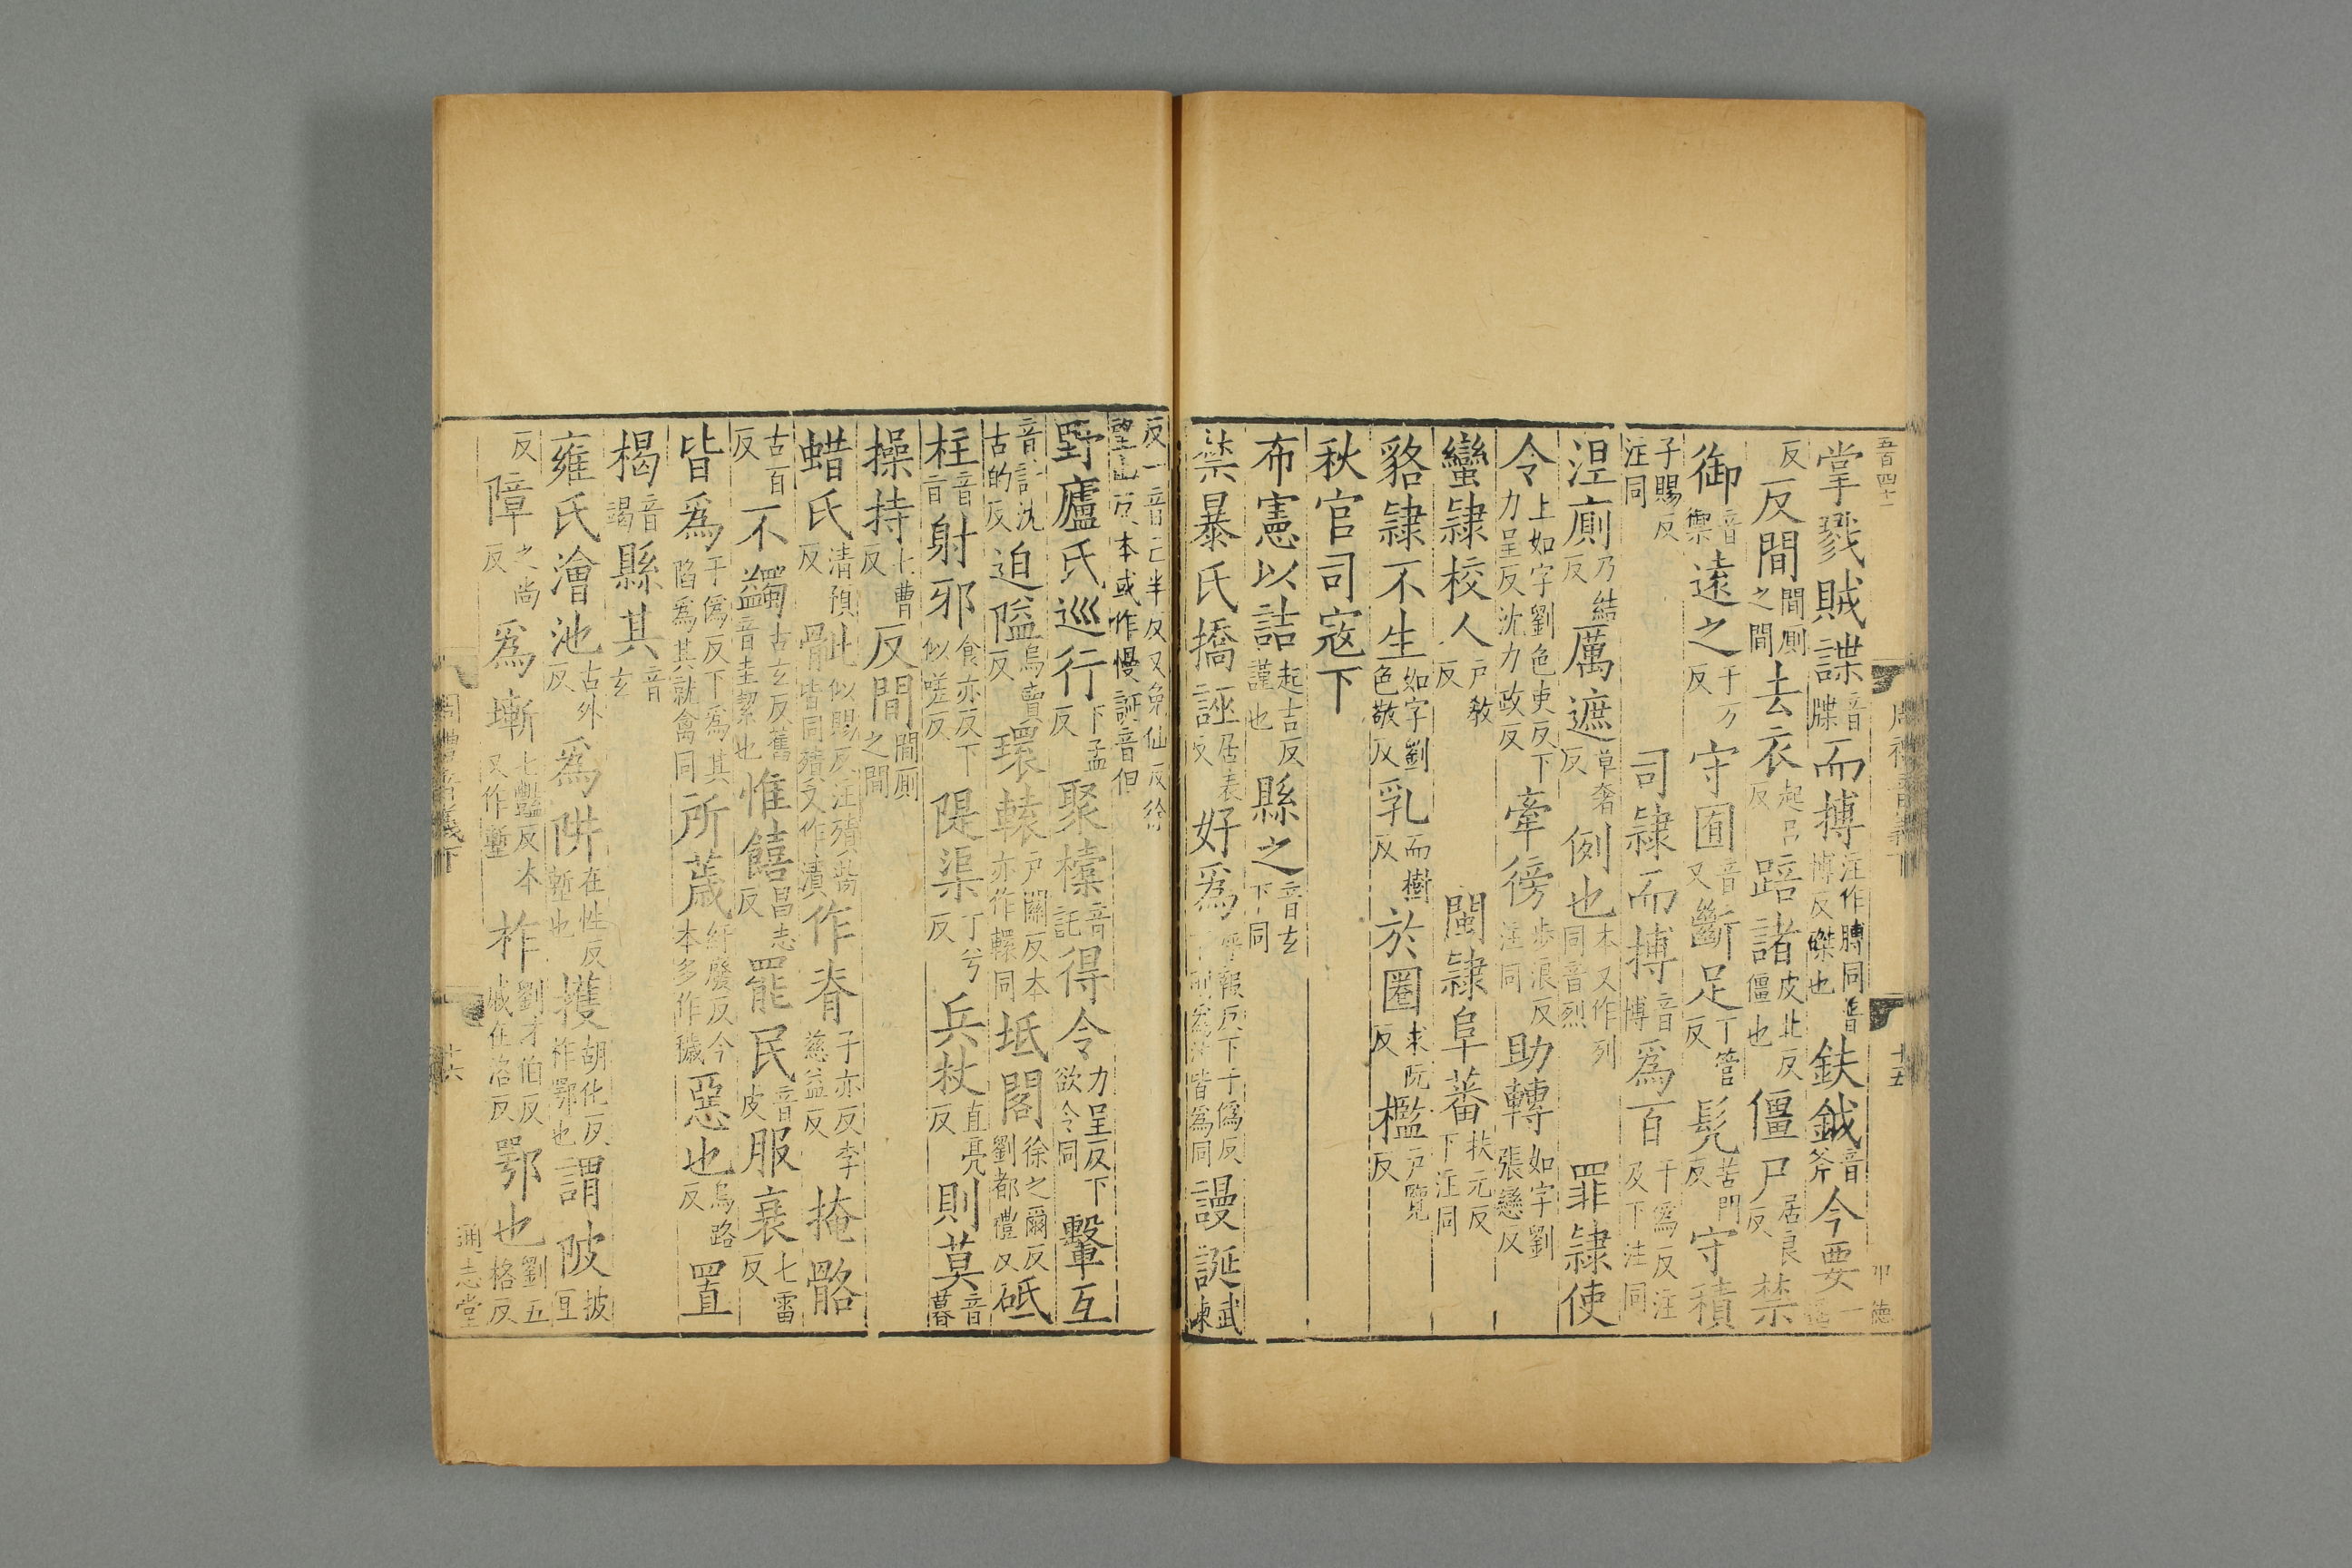 五百四十一 周禮音義下 十五 徳
掌戮賊諜音牒而搏注作膊同音博反磔也鈇鉞音斧今要一
反反間間厠之間去衣起呂反踣諸皮北反僵也僵尸居良反禁
御音禦遠之于万反守囿音又斷足丁管反髡苦門反守積
子賜反注同司隷而搏音博爲百于爲反注及下注同
涅廁乃結反厲遮草奢反例也本又作列同音烈罪隷使
令上如字劉色吏反下力呈反沈力政反牽徬步浪反注同助轉如字劉張戀反
蠻隷校人戸敎反閩隷阜蕃扶元反下注同
貉隷不生如字劉色敬反乳而樹反於圈求阮反檻戸覽反
秋官司寇下
布憲以詰起吉反謹也縣之音玄下同
禁暴氏撟誣居表反好爲呼報反下于僞反皆爲同謾誕武諫
反一音亡半反又免仙反徐望山反本或作慢誕音但
野廬氏巡行下孟反聚㯓音託得令力呈反下欲令同轚互
音計沈古的反迫隘烏賣反環轅戸關反本亦作轘同坻閣徐之爾反劉都禮反砥
柱音旨射邪食亦反下似嗟反隄渠丁兮反兵杖直亮反則莫音暮
操持七曹反反間間厠之間
蜡氏清預反骴似賜反注殨胔骨皆同殨又作漬作脊子亦反李慈益反掩骼
古百反不蠲古玄反舊音圭絜也惟饎昌志反罷民音皮服衰七雷反
皆爲于僞反下爲其陷爲其就禽同所薉紆廢反今本多作穢惡也烏路反置
楬音竭縣其音玄
雍氏澮池古外反爲阱在性反塹也擭胡化反柞鄂也謂陂披宜
反障之尚反爲塹七豔反本又作壍柞劉才伯反戚在洛反鄂也劉五格反
周禮音義下 十六 通志堂